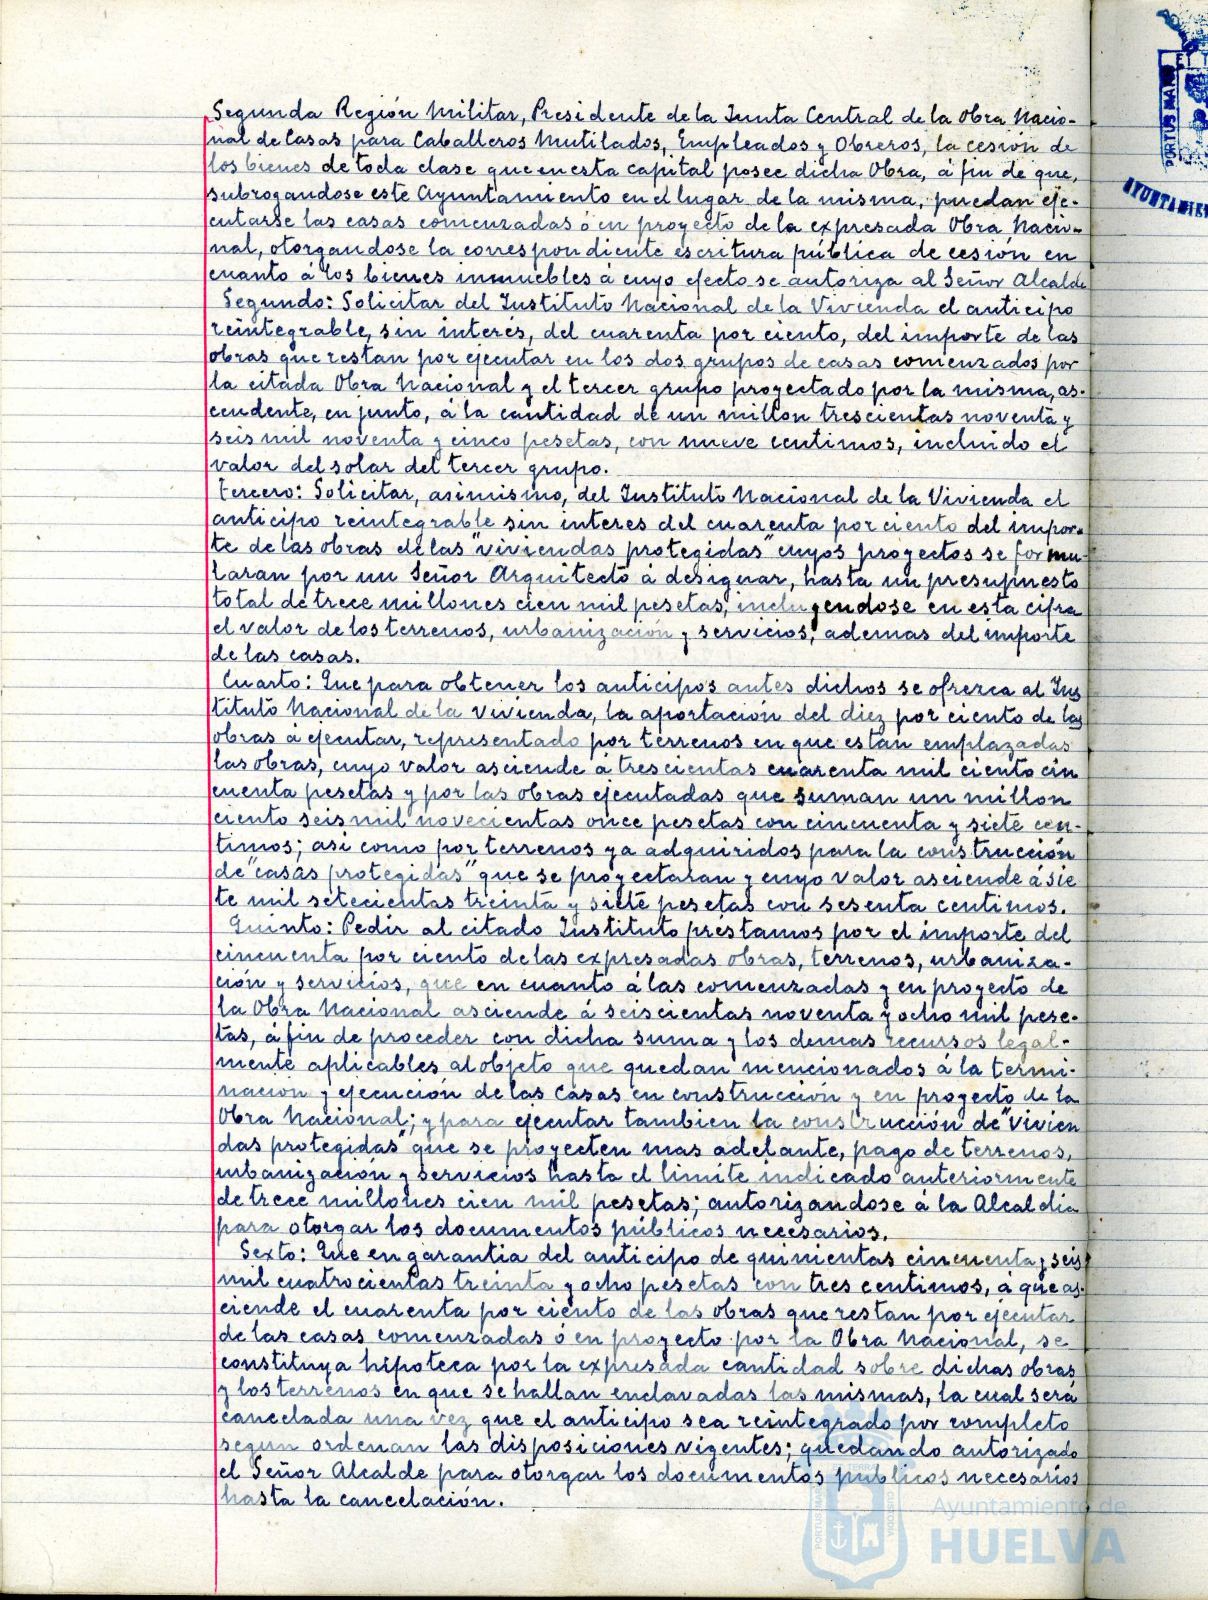 Segunda Región Militar, Presidente de la Junta Central de la Obra Nacio-
nal de Casas para Caballeros Mutilados, Empleados y Obreros, la cesión de
los bienes de toda clase que en esta capital posee dicha Obra, á fin de que,
subrogandose este Ayuntamiento en el lugar de la misma, puedan eje-
cutarse las casas comenzadas ó en proyecto de la expresada Obra Nacio-
nal, otorgandose la correspondiente escritura pública de cesión en
cuanto á los bienes inmuebles á cuyo efecto se autoriza al Señor Alcalde
Segundo: Solicitar del Instituto Nacional de la Vivienda el anticipo
reintegrable, sin interés, del cuarenta por ciento, del importe de las
obras que restan por ejecutar en los dos grupos de casas comenzados por
la citada Obra Nacional y el tercer grupo proyectado por la misma, as-
cendente, en junto, á la cantidad de un millon trescientas noventa y
seis mil noventa y cinco pesetas, con nueve centimos, incluido el
valor del solar del tercer grupo.
Tercero: Solicitar, asimismo, del Instituto Nacional de la Vivienda el
anticipo reintegrable sin interes del cuarenta por ciento del impor-
te de las obras de las "viviendas protegidas" cuyos proyectos se formu-
laran por un Señor Arquitecto á designar, hasta un presupuesto
total de trece millones cien mil pesetas, incluyendose en esta cifra
el valor de los terrenos, urbanización y servicios, ademas del importe
de las casas.
Cuarto: Que para obtener los anticipos antes dichos se ofrezca al Ins
tituto Nacional de la Vivienda, la aportación del diez por ciento de las
obras á ejecutar, representado por terrenos en que están emplazadas
las obras, cuyo valor asciende á trescientas cuarenta mil ciento cin
cuenta pesetas y por las obras ejecutadas que suman un millon
ciento seis mil novecientas once pesetas con cincuenta y siete cen-
timos; asi como por terrenos ya adquiridos para la construcción
de "casas protegidas" que se proyectaran y cuyo valor asciende á sie
te mil setecientas treinta y siete pesetas con sesenta centimos.
Quinto: Pedir al citado Instituto préstamos por el importe del
cincuenta por ciento de las expresadas obras, terrenos, urbaniza-
ción y servicios, que en cuanto á las comenzadas y en proyecto de
la Obra Nacional asciende á seiscientas noventa y ocho mil pese-
tas, á fin de proceder con dicha suma y los demas recursos legal-
mente aplicables al objeto que quedan mencionados á la termi-
nacion y ejecución de las casas en construcción y en proyecto de la
Obra Nacional; y para ejecutar tambien la construcción de "vivien
das protegidas" que se proyecten mas adelante, pago de terrenos,
urbanización y servicios hasta el limite indicado anteriormente
de trece millones cien mil pesetas; autorizandose á la Alcaldia
para otorgar los documentos públicos necesarios.
Sexto: Que en garantia del anticipo de quinientas cincuenta y seis
mil cuatrocientas treinta y ocho pesetas con tres centimos, á que as-
ciende el cuarenta por ciento de las obras que restan por ejecutar
de las casas comenzadas ó en proyecto por la Obra Nacional, se
constituya hipoteca por la expresada cantidad sobre dichas obras
y los terrenos en que se hallan enclavadas las mismas, la cual será
cancelada una vez que el anticipo sea reintegrado por completo
segun ordenan las disposiciones vigentes; quedando autorizado
el Señor Alcalde para otorgar los documentos publicos necesarios
hasta la cancelación.
PORTUS MARIS
AYUNTAMIEN
Ayuntamiento de
HUELVA